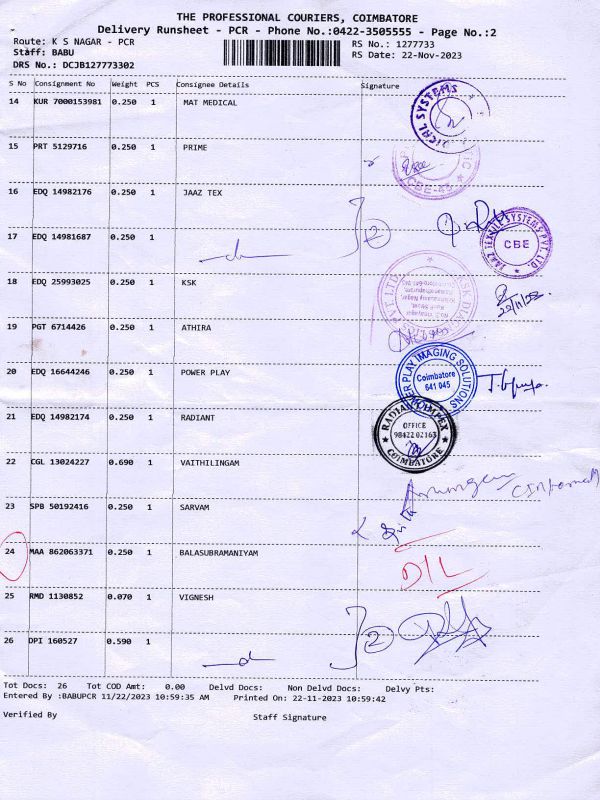 THE PROFESSIONAL COURIERS, COIMBATORE
Delivery Runsheet - PCR - Phone No.:0422-3505555 - Page No.:2
Route: K S NAGAR - PCR
RS No.: 1277733
Staff: BABU
RS Date: 22-Nov-2023
DRS No.: DCJB127773302
S No Consignment No Weight PCS Consignee Details Signature
14 KUR 7000153981 0.250 1 MAT MEDICAL
15 PRT 5129716 0.250 1 PRIME
CBE-45
16 EDQ 14982176 0.250 1 JAAZ TEX
2
JAAZ TEXTILE SYSTEMS PVT.LTD.
CBE
17 EDQ 14981687 0.250 1
18 EDQ 25993025 0.250 1 KSK
22/11/23
19 PGT 6714426 0.250 1 ATHIRA
20 EDQ 16644246 0.250 1 POWER PLAY
POWER PLAY IMAGING SOLUTIONS
Coimbatore
641 045
21 EDQ 14982174 0.250 1 RADIANT
OFFICE
98422 02163
COIMBATORE
22 CGL 13024227 0.690 1 VAITHILINGAM
23 SPB 50192416 0.250 1 SARVAM
24 MAA 862063371 0.250 1 BALASUBRAMANIYAM
D/L
25 RMD 1130852 0.070 1 VIGNESH
2
26 DPI 160527 0.590 1
Tot Docs: 26 Tot COD Amt: 0.00 Delvd Docs: Non Delvd Docs: Delvy Pts:
Entered By :BABUPCR 11/22/2023 10:59:35 AM Printed On: 22-11-2023 10:59:42
Verified By Staff Signature